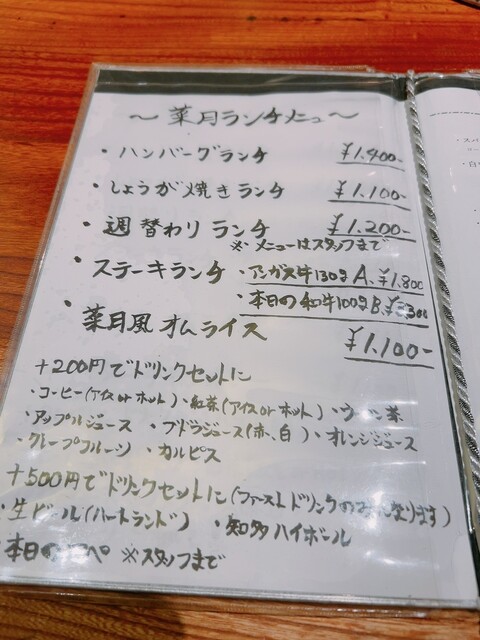 ～葉月ランチメニュー～
・ハンバーグランチ ¥1.400-
・しょうが焼きランチ ¥1.100-
・週替わりランチ ¥1.200-
※メニューはスタッフまで
・ステーキランチ・アンガス牛130g A.¥1.800
・本日の和牛100g B.
・葉月風オムライス ¥1.100-
+200円でドリンクセットに
・コーヒー(アイスorホット)・紅茶(アイスorホット)・ウーロン茶
・アップルジュース ・ブドウジュース(赤、白)・オレンジジュース
・グレープフルーツ ・カルピス
+500円でドリンクセットに(ファーストドリンクのみになります)
・生ビール(ハートランド) ・知多ハイボール
本日の ※スタッフまで